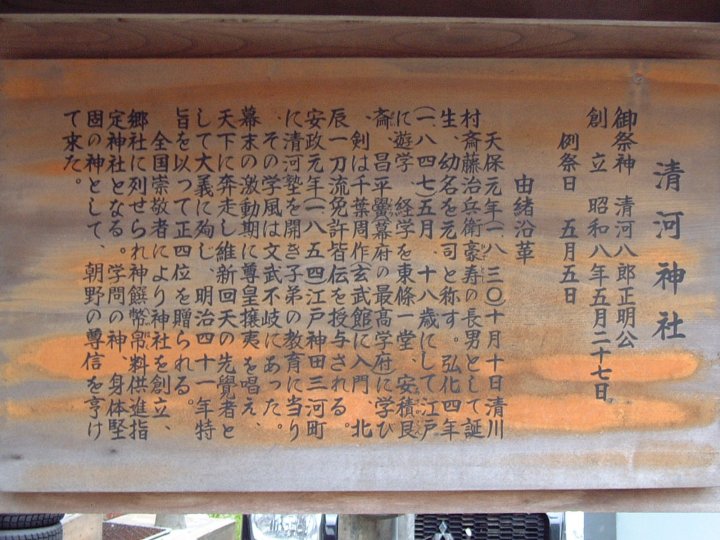 清河神社
御祭神 清河八郎正明公
創立 昭和八年五月二十七日
例祭日 五月五日
由緒沿革
天保元年(一八三〇)十月十日清川
村斎藤治兵衛豪寿の長男として誕
生、幼名を元司と称す。弘化四年
(一八四七)五月 十八歳にして江戸
に遊学、経学を東條一堂、安積艮
斎、昌平黌幕府の最高学府に学び
、剣は千葉周作(玄武館に入門、北
辰一刀流免許皆伝を授与される。
安政元年(一八五四)江戸神田三河町
に清河塾を開き子弟の教育に当り
、その学風は文武不岐にあった。
幕末の激動期に尊皇攘夷を唱え、
天下に奔走し維新回天の先覺者と
して大義に殉し、明治四十一年特
旨を以つて正四位を贈られる。
全国崇敬者により神社を創立、
郷社に列せられ神饌幣帛料供進指
定神社となる。学問の神、身体堅
固の神として、朝野の尊信を享け
て来た。